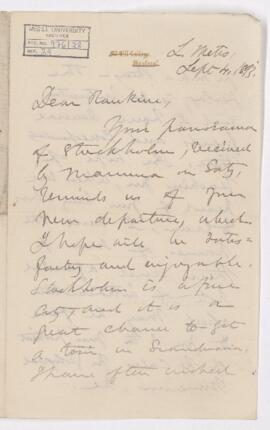 McGILL UNIVERSITY
ARCHIVES
ACC. NO. 976/38
REF. 29
McGill College
Montreal
L. Metis,
Sept 4, 189
Dear Rankine,
Your panorama
of Stockholm, received
by Mamma on Saty,
reminds us of your
new departure, which
I hope will be satis-
factory and enjoyable.
Stockholm is a fine
city, and it is a
great chance to get
a tour in Scandinavia.
I have often wished